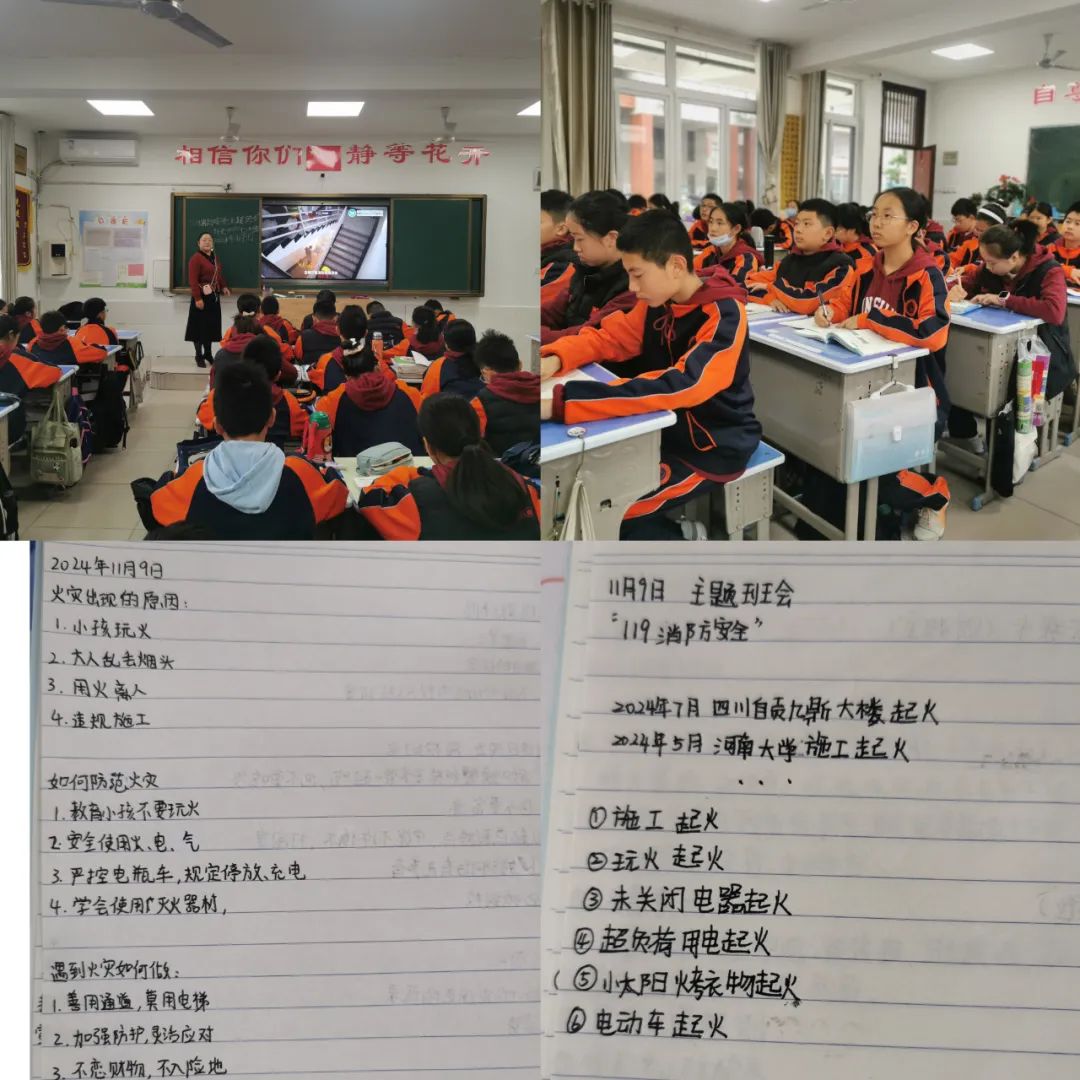 相信你们 静等花开
自
2024年11月9日
火灾出现的原因:
1. 小孩玩火
2. 大人乱丢烟头
3. 用火离人
4. 违规施工
如何防范火灾
1. 教育小孩不要玩火
2. 安全使用火、电、气
3. 严控电瓶车,规定停放、充电
4. 学会使用灭火器材,
遇到火灾如何做:
1. 善用通道,莫用电梯
2. 加强防护,灵活应对
3. 不恋财物,不入险地
11月9日 主题班会
“119消防安全”
2024年7月 四川自贡九鼎大楼起火
2024年5月 河南大学施工起火
...
①施工起火
②玩火起火
③未关闭电器起火
④超负荷用电起火
⑤小太阳烤衣物起火
⑥电动车起火